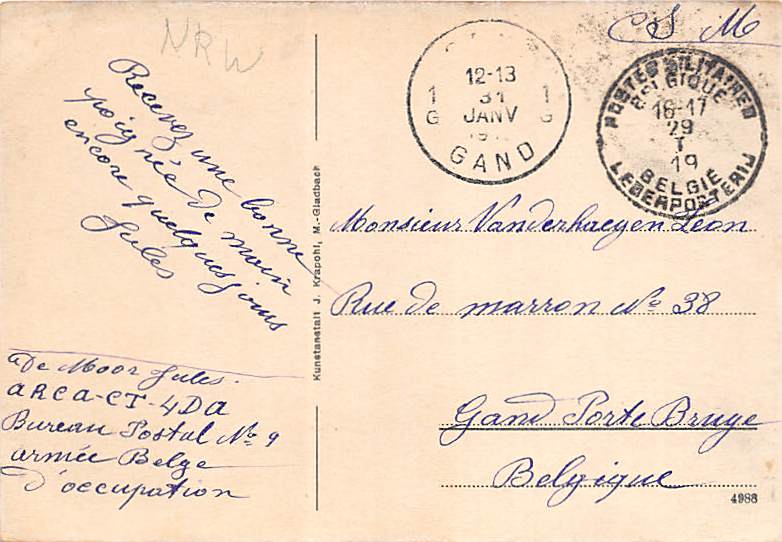 NRW
Recevez une bonne
poignée de main
encore quelques jours
Jules
De Moor Jules.
ARCA-CT-4DA
Bureau Postal No 9
armée Belge
d'occupation
Kunstanstalt J. Krapohl, M.-Gladbach
12-13
1 31 1
G JANV G
GAND
S M
POSTES MILITAIRES
BELGIQUE
16-17
29
I
19
BELGIË
LEGERPOSTERIJ
Monsieur Vanderhaegen Léon
Rue de marron No 38
Gand Porte Bruge
Belgique
4988